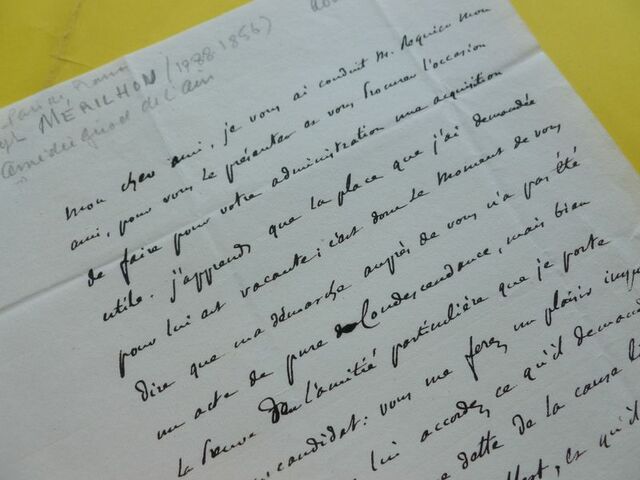 MÉRILHON (1788.1856)
Amédée Girod de l'Ain
mon cher ami, je vous ai conduit M. Roquier mon
ami, pour vous le présenter et vous procurer l'occasion
de faire pour votre administration une acquisition
utile. j'apprends que la place que j'ai demandée
pour lui est vacante; c'est donc le moment de vous
dire que ma démarche auprès de vous n'a pas été
un acte de pure Condescendance, mais bien
la preuve de l'amitié particulière que je porte
candidat: vous me ferez un plaisir
lui accordez ce qu'il
dette de la cause
est qu'il